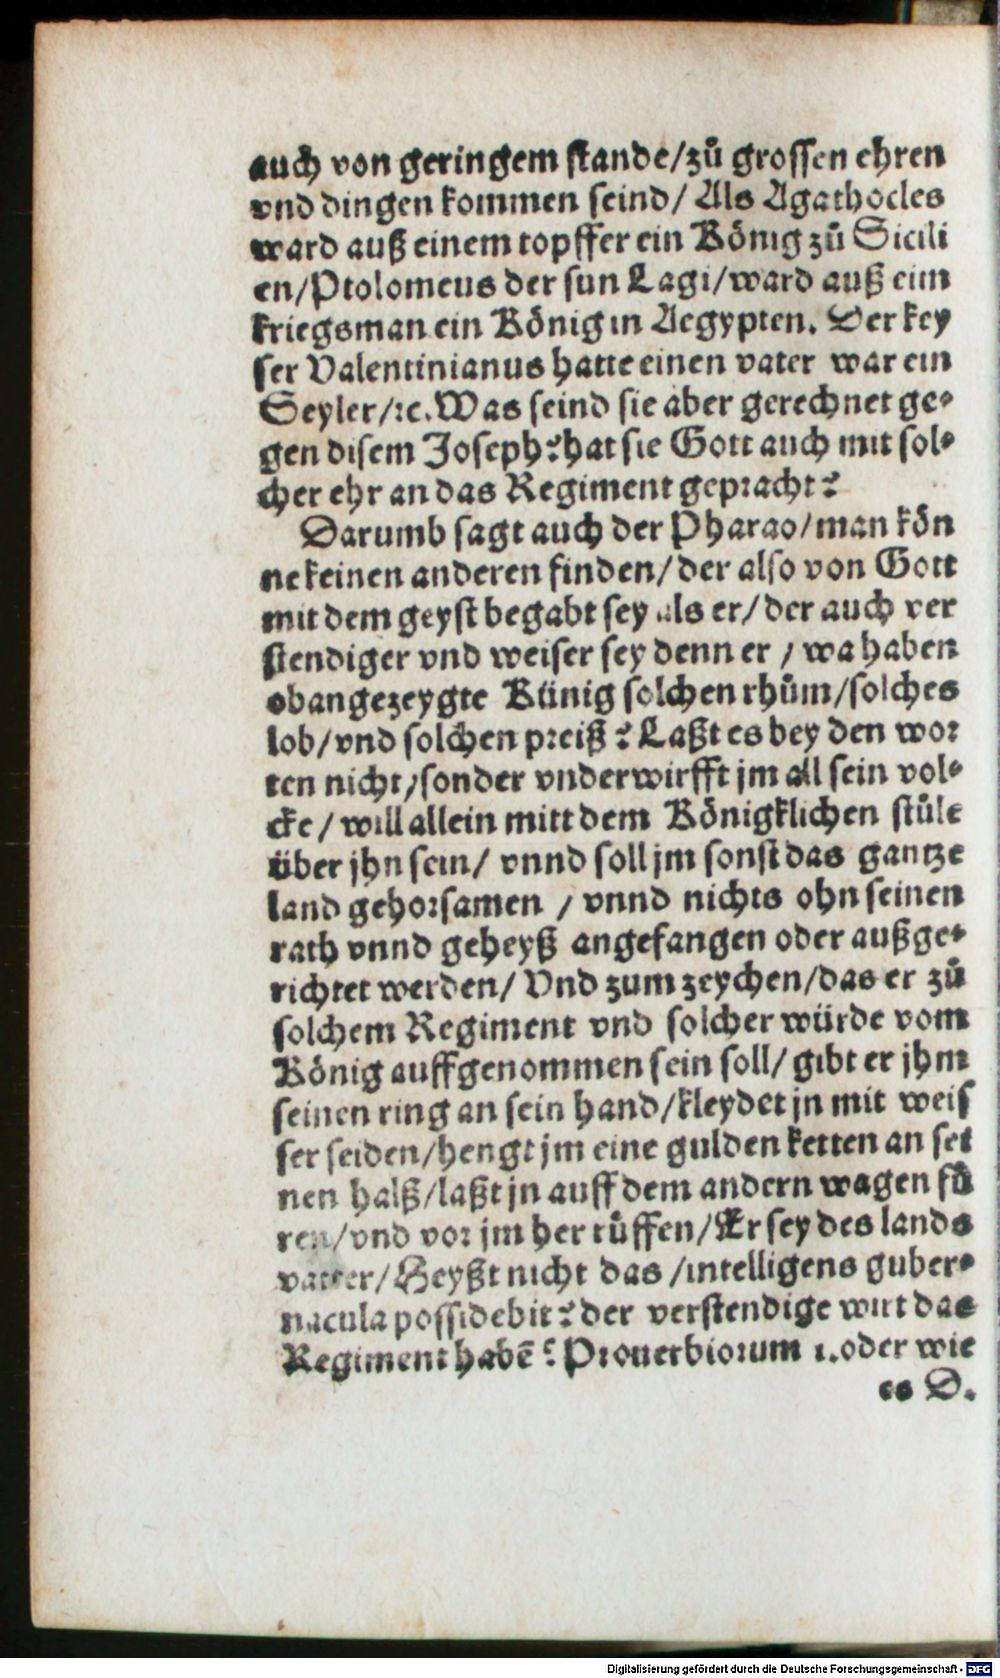 auch von geringem stande/zů grossen ehren
vnd dingen kommen seind/ Als Agathocles
ward auß einem topffer ein König zů Sicili
en/Ptolomeus der sun Lagi/ward auß eim
kriegsman ein König in Aegypten. Der key
ser Valentinianus hatte einen vater war ein
Seyler/ꝛc. Was seind sie aber gerechnet ge⸗
gen disem Joseph? hat sie Gott auch mit sol⸗
cher ehr an das Regiment gepracht?
Darumb sagt auch der Pharao/man kön
ne keinen anderen finden/der also von Gott
mit dem geyst begabt sey als er/der auch ver
stendiger vnd weiser sey denn er / wa haben
obangezeygte Künig solchen rhům/solches
lob/vnd solchen preiß? Laßt es bey den wor
ten nicht/sonder vnderwirfft jm all sein vol⸗
cke/ will allein mitt dem Königklichen stůle
über jhn sein/ vnnd soll jm sonst das gantze
land gehorsamen / vnnd nichts ohn seinen
rath vnnd geheyß angefangen oder außge⸗
richtet werden/ Vnd zum zeychen/das er zů
solchem Regiment vnd solcher würde vom
König auffgenommen sein soll/ gibt er jhm
seinen ring an sein hand/kleydet jn mit weis
ser seiden/hengt jm eine gulden ketten an sei
nen halß/laßt jn auff dem andern wagen fů
ren/vnd vor jm her růffen/Er sey des lands
vatter/Heyßt nicht das/intelligens guber⸗
nacula possidebit? der verstendige wirt das
Regiment habē? Prouerbiorum 1. oder wie
es D.
Digitalisierung gefördert durch die Deutsche Forschungsgemeinschaft - DFG